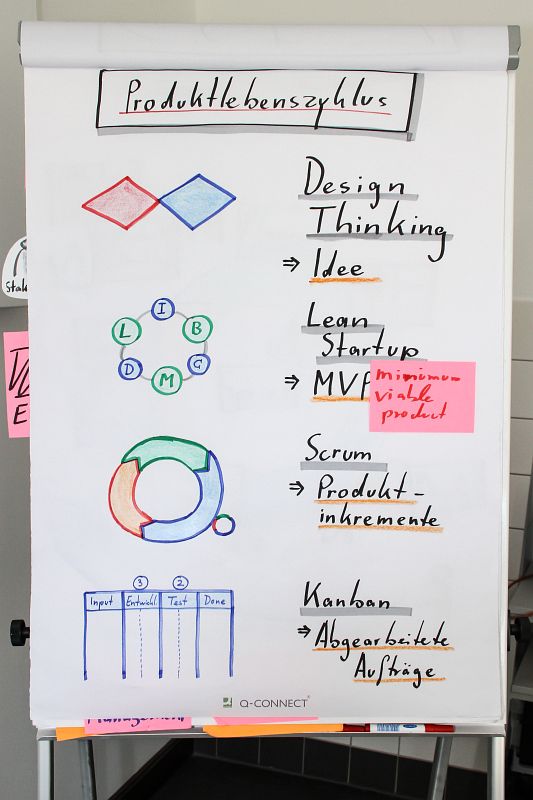 Produktlebenszyklus
Design
Thinking
⇒ Idee
I
L
B
D
G
M
Lean
Startup
⇒ MVP
minimum
viable
product
Scrum
⇒ Produkt-
inkremente
3 2
Input Entwickl. Test Done
Kanban
⇒ Abgearbeitete
Aufträge
Q-CONNECT®
Stak
E
Management